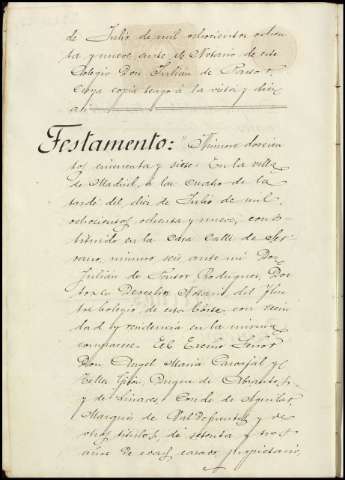 de Julio de mil ochocientos ochen-
ta y nueve ante el Notario de este
Colegio Don Julián de Pastor y
cuya copia tengo á la vista y dice
así
Testamento: "Número doscien-
tos cincuenta y siete. En la villa
de Madrid, á las cuatro de la
tarde del diez de Julio de mil
ochocientos ochenta y nueve, cons-
tituido en la Casa Calle de Ser-
rano, número seis ante mí Don
Julián de Pastor Rodriguez, Doc-
tor en Derecho Notario del Ilus-
tre Colegio de esta Corte con vecin-
dad y residencia en la misma
comparece. El Excmo Señor
Don Angel María Carvajal y
Tellez Girón, Duque de Abrantes,
y de Linares Conde de Aguilar
Marqués de Valdefuentes y de
otros títulos, de setenta y tres
años de edad, casado, propietario,